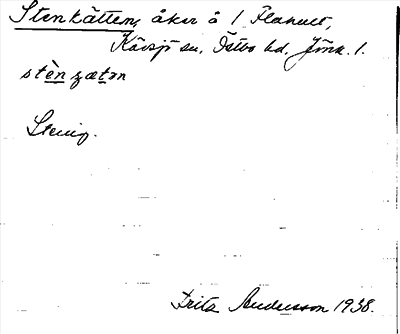 Stenkätten, åker å 1 Flahult,
Kävsjö sn, Östbo hd, Jönk. l.
stènzætən
Stenig.
Fritz Andersson 1938.